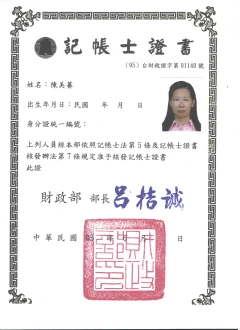 記帳士證書
(95)台財稅證字第01140號
姓名：陳美蓁
出生年月日：民國　年　月　日
身分證統一編號：
上列人員經本部依照記帳士法第5條及記帳士證書
核發辦法第7條規定准予核發記帳士證書
此證
財政部 部長 呂桔誠
中華民國 95 年 月 日